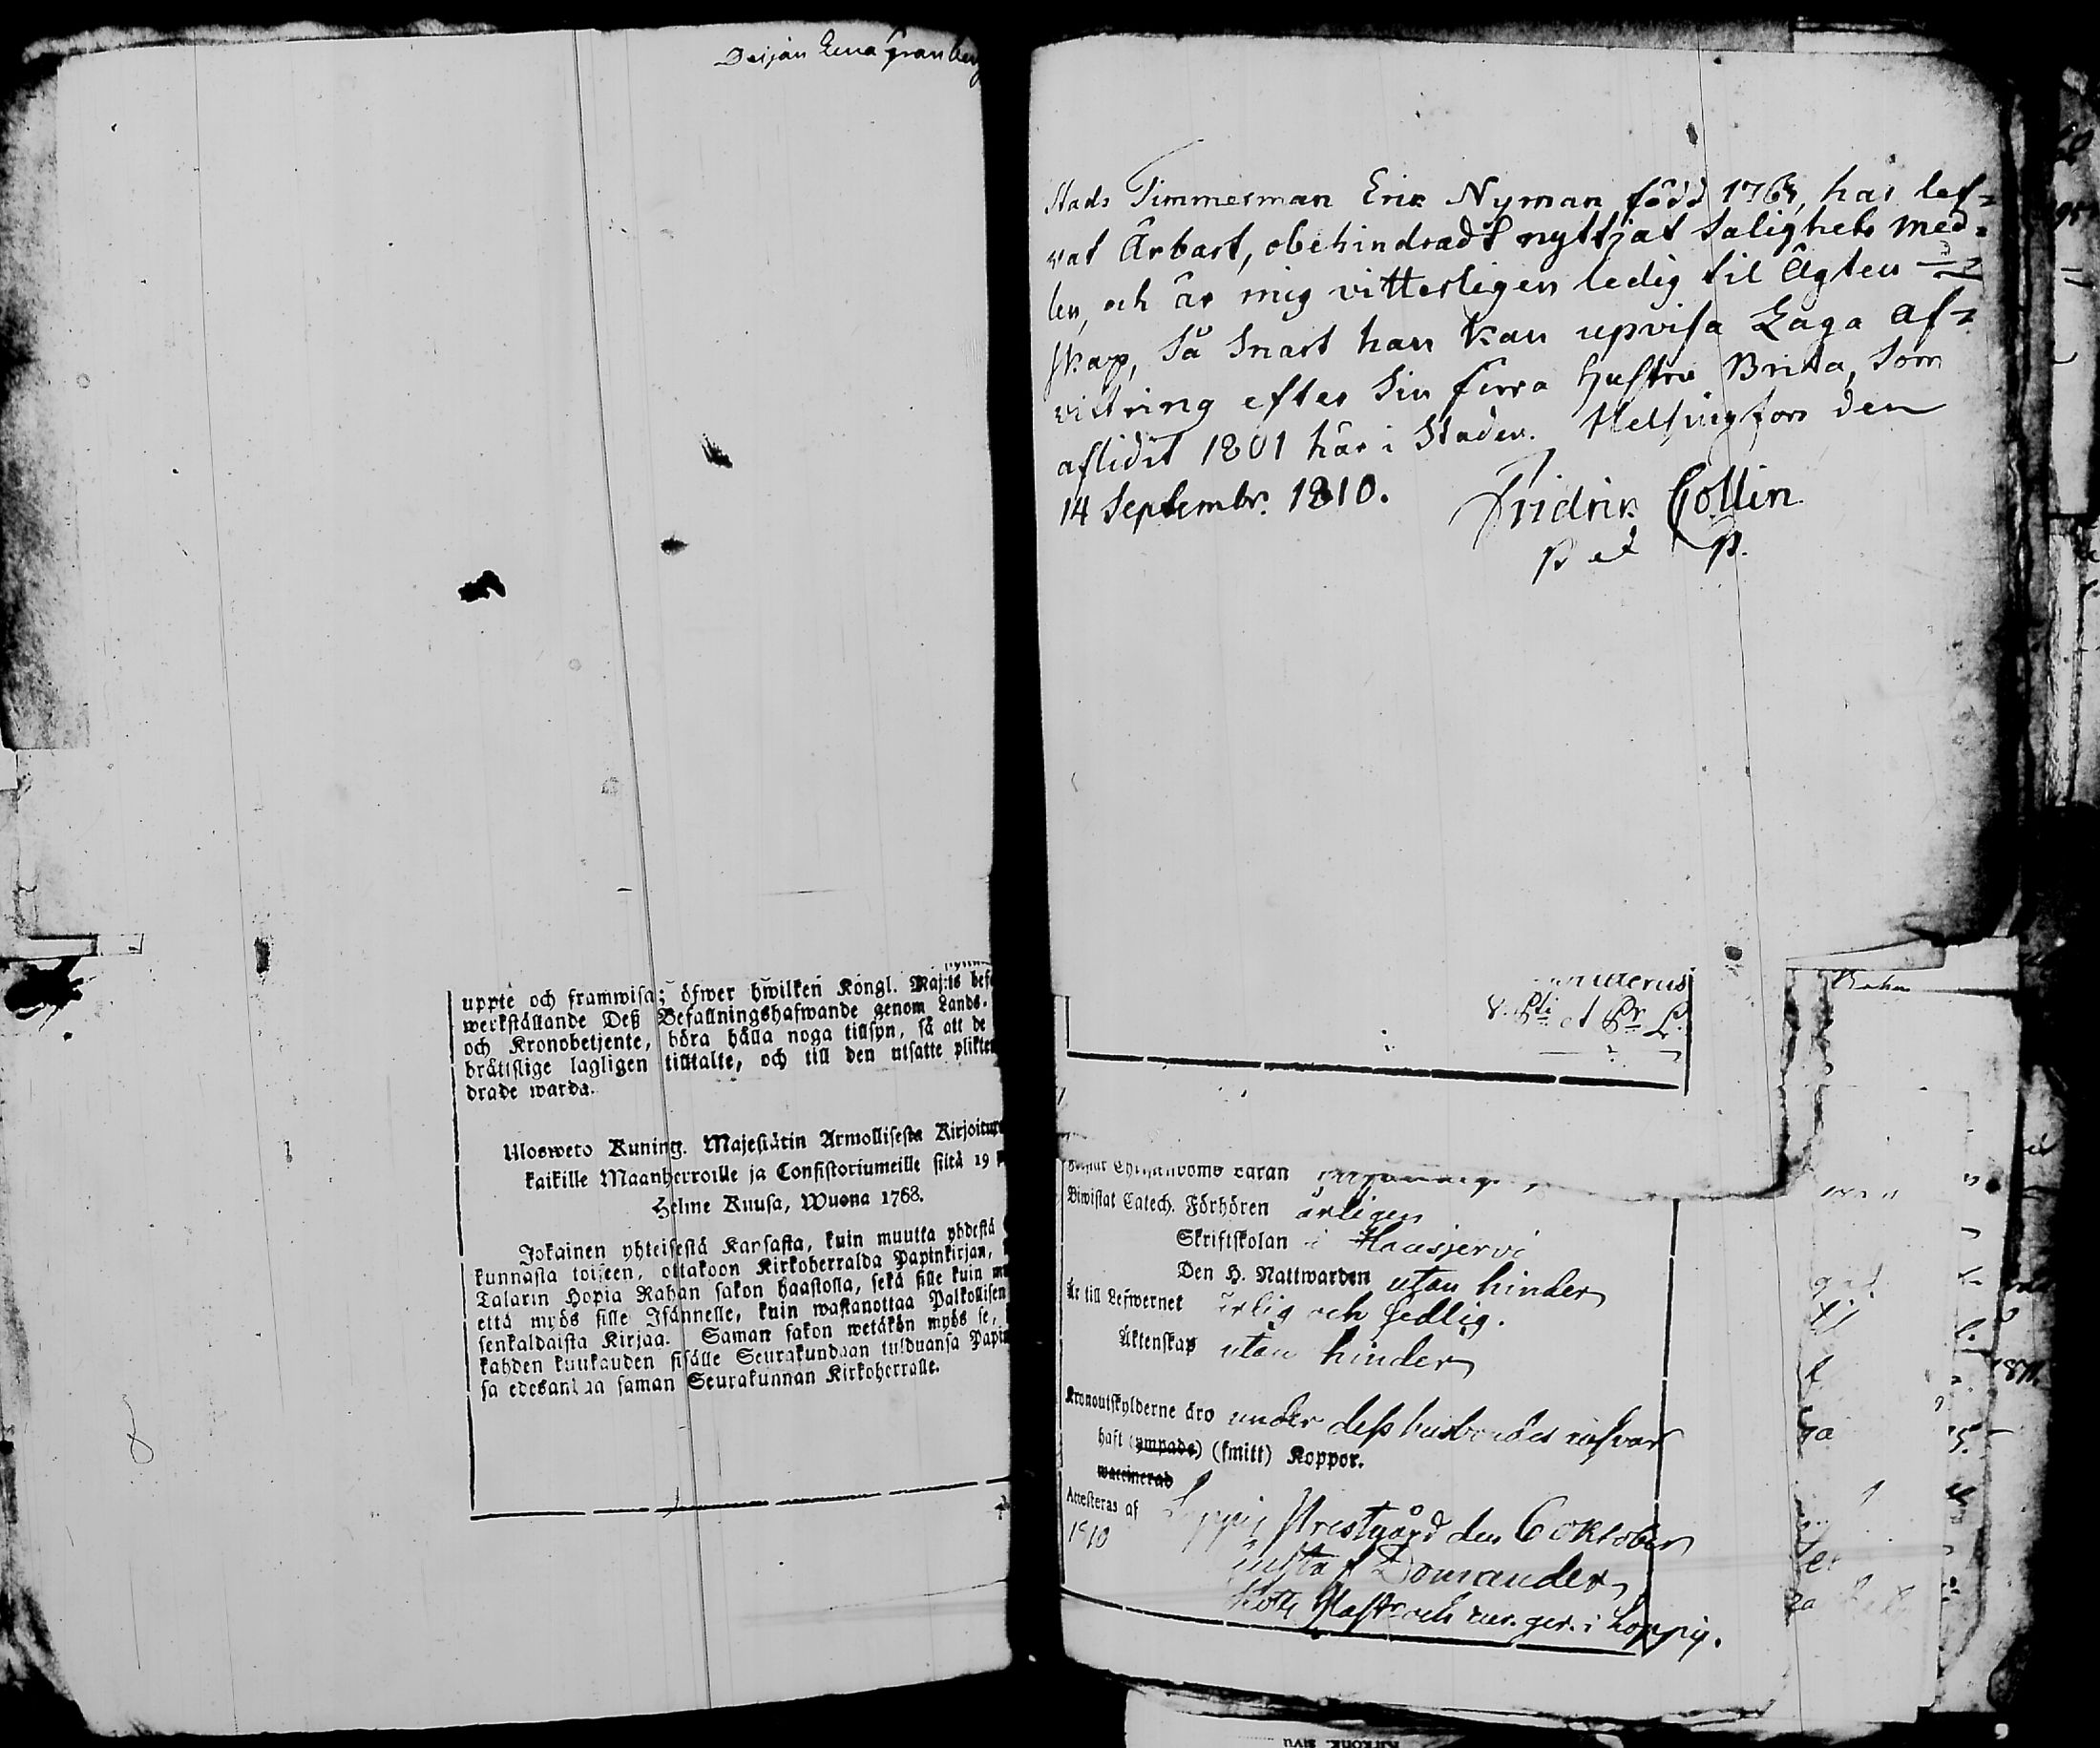 Deijan Lena Granberg
uppte och framwisa; öfwer hwilken Kongl. Maj:ts bef
werkställande Deß Befallningshafwande genom Lands-
och Kronobetjente, böra hålla noga tillsyn, så att de
brättslige lagligen tilltalte, och till den utsatte plikten
drade warda.
Ulosweto Kuning. Majestätin Armollisesta Kirjoitus
kaikille Maanherroille ja Consistoriumeille siitä 19 p
Helme Kuusa, Wuona 1768.
Jokainen yhteisestä Kansasta, kuin muutta yhdestä
kunnasta toiseen, ottakoon Kirkoherralda Papinkirjan,
Talarin Hopia Rahan sakon haastolla, sekä sille kuin m
että myös sille Isännelle, kuin wastanottaa Palkollisen
senkaldaista Kirjaa. Saman sakon wetäkön myös se,
kahden kuukauden sisälle Seurakundaan tulduansa Papin
sa edesandaa saman Seurakunnan Kirkoherralle.
Stads Timmerman Erik Nyman född 1763, har lef=
vat Ärbart, obehindradt nyttjat Salighets med=
len, och är mig vitterligen ledig til Ägten=
skap, så snart han kan upvisa Laga af=
vittring efter sin förra Hustru Brita, som
aflidit 1801 här i Staden. Helsingfors den
14 Septembr. 1810. Fridrik Collin
P et P.
V. Pti et Pr L.
Christendoms Läran
Biwistat Catech. Förhören årligen
Skriftskolan i Hausjerwi
Den H. Nattwarden utan hinder
Är till Lefwernet ärlig och sedlig.
Äktenskap utan hinder
Kronoutskylderne äro under dess husbondes ansvar
haft (ympade) (smitt) Koppor.
waccinerad
Attesteras af Loppis Prestgård den 6 oktober
1810
Gustaf Domander
Kots Past. och vur. ger. i Loppis.